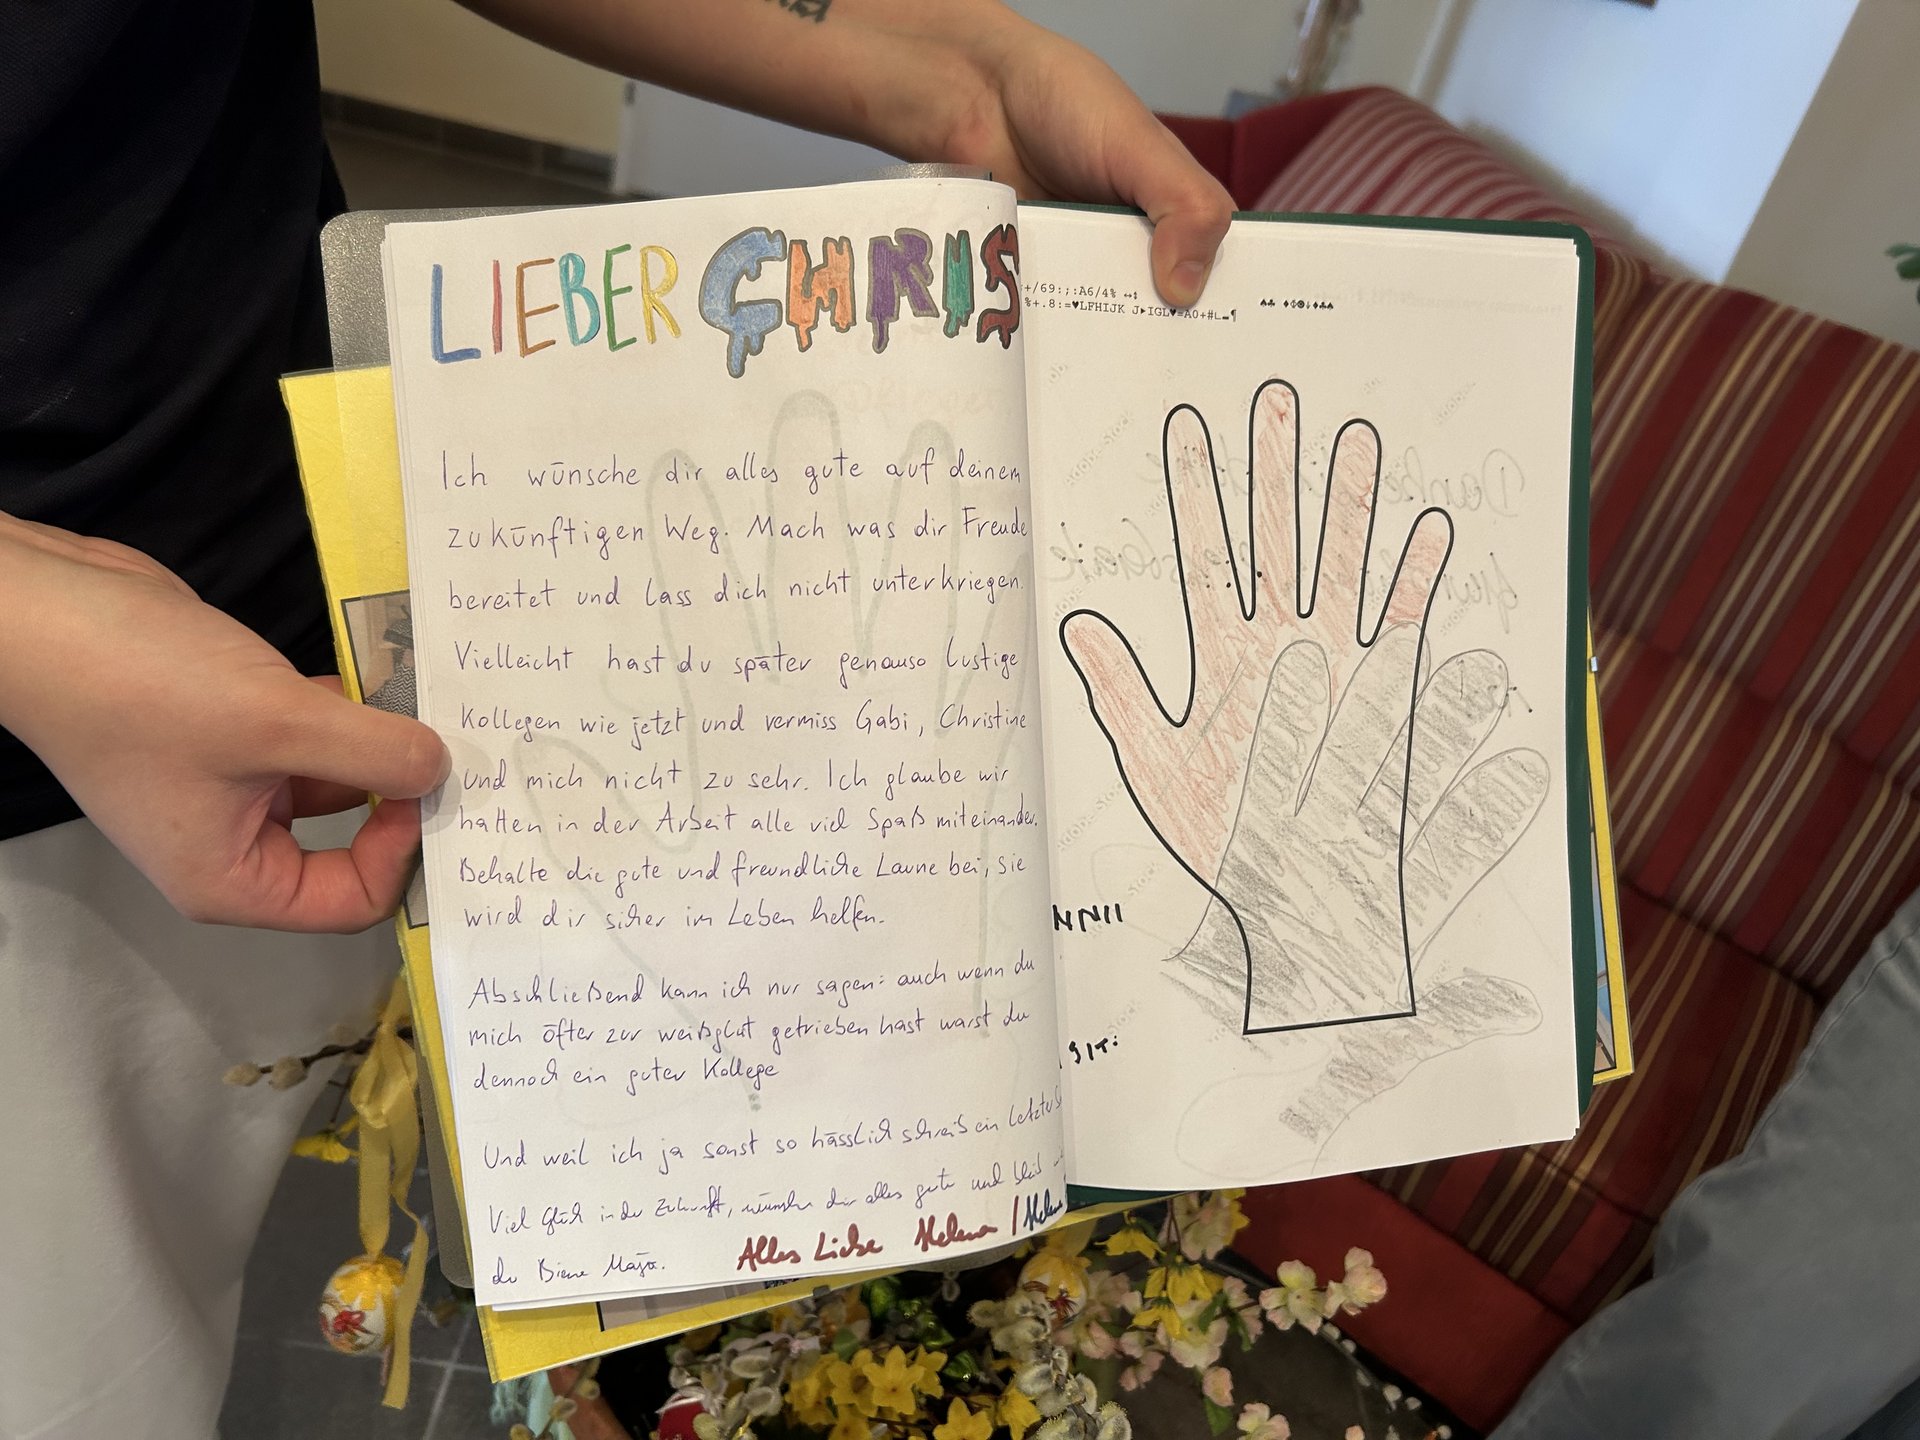 LIEBER CHRIS
Ich wünsche dir alles gute auf deinem
zukünftigen Weg. Mach was dir Freude
bereitet und lass dich nicht unterkriegen.
Vielleicht hast du später genauso lustige
Kollegen wie jetzt und vermiss Gabi, Christine
und mich nicht zu sehr. Ich glaube wir
hatten in der Arbeit alle viel Spaß miteinander.
Behalte die gute und freundliche Laune bei, sie
wird dir sicher im Leben helfen.
Abschließend kann ich nur sagen: auch wenn du
mich öfter zur weißglut getrieben hast warst du
dennoch ein guter Kollege
Und weil ich ja sonst so hässlich schreib ein letztes
Viel Glück in der Zukunft, wünsche dir alles gute und bleib
du Biene Maja.
Alles Liebe Helena / Helena
+/69:;:A6/4% ↔↕ ♠♣
%+.8:=♥LFHIJK J►IGL♥=A0+#∟▬¶